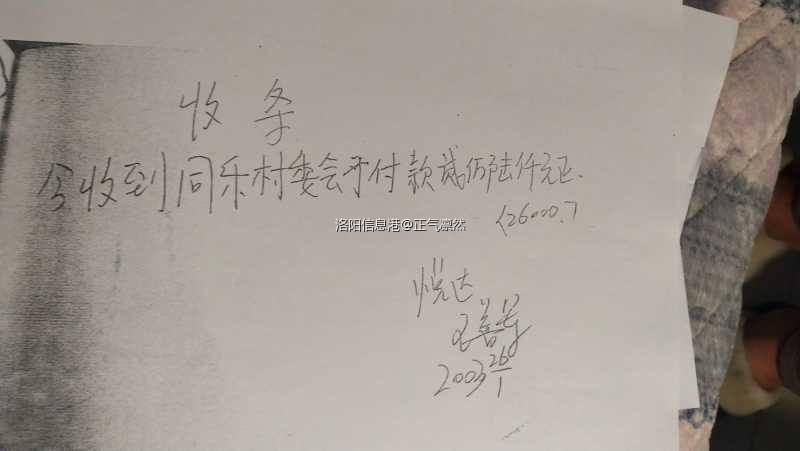 收条
今收到同乐村委会予付款贰仟陆仟元正.
<26000.>
洛阳信息港@正气凛然
悦达
2003 26/1